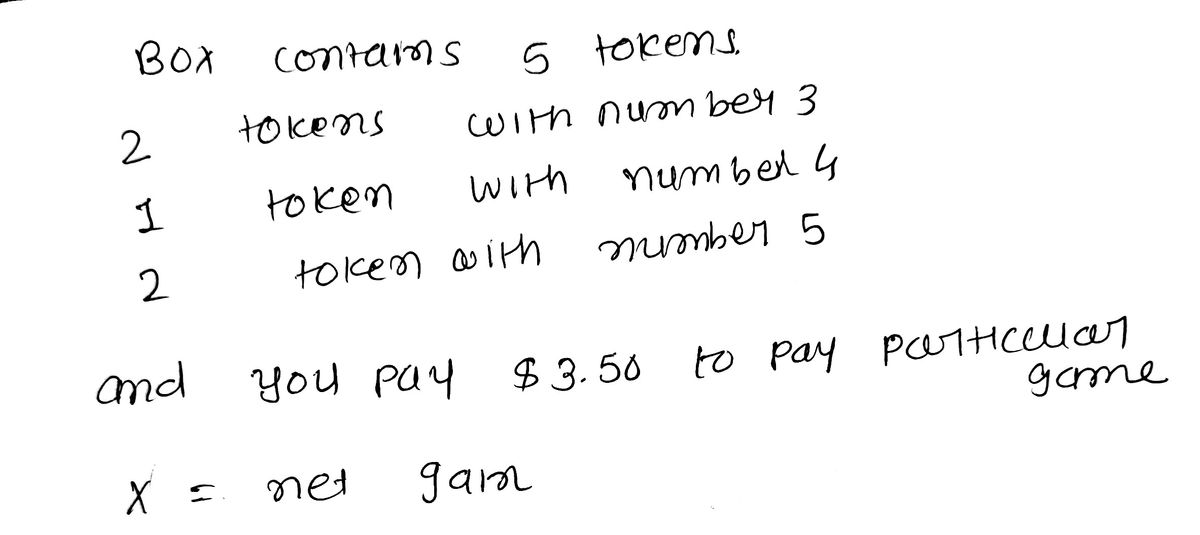 Box contains 5 tokens.
2 tokens with number 3
1 token with number 4
2 token with number 5
and you pay $3.50 to pay particular
game
X = net gain